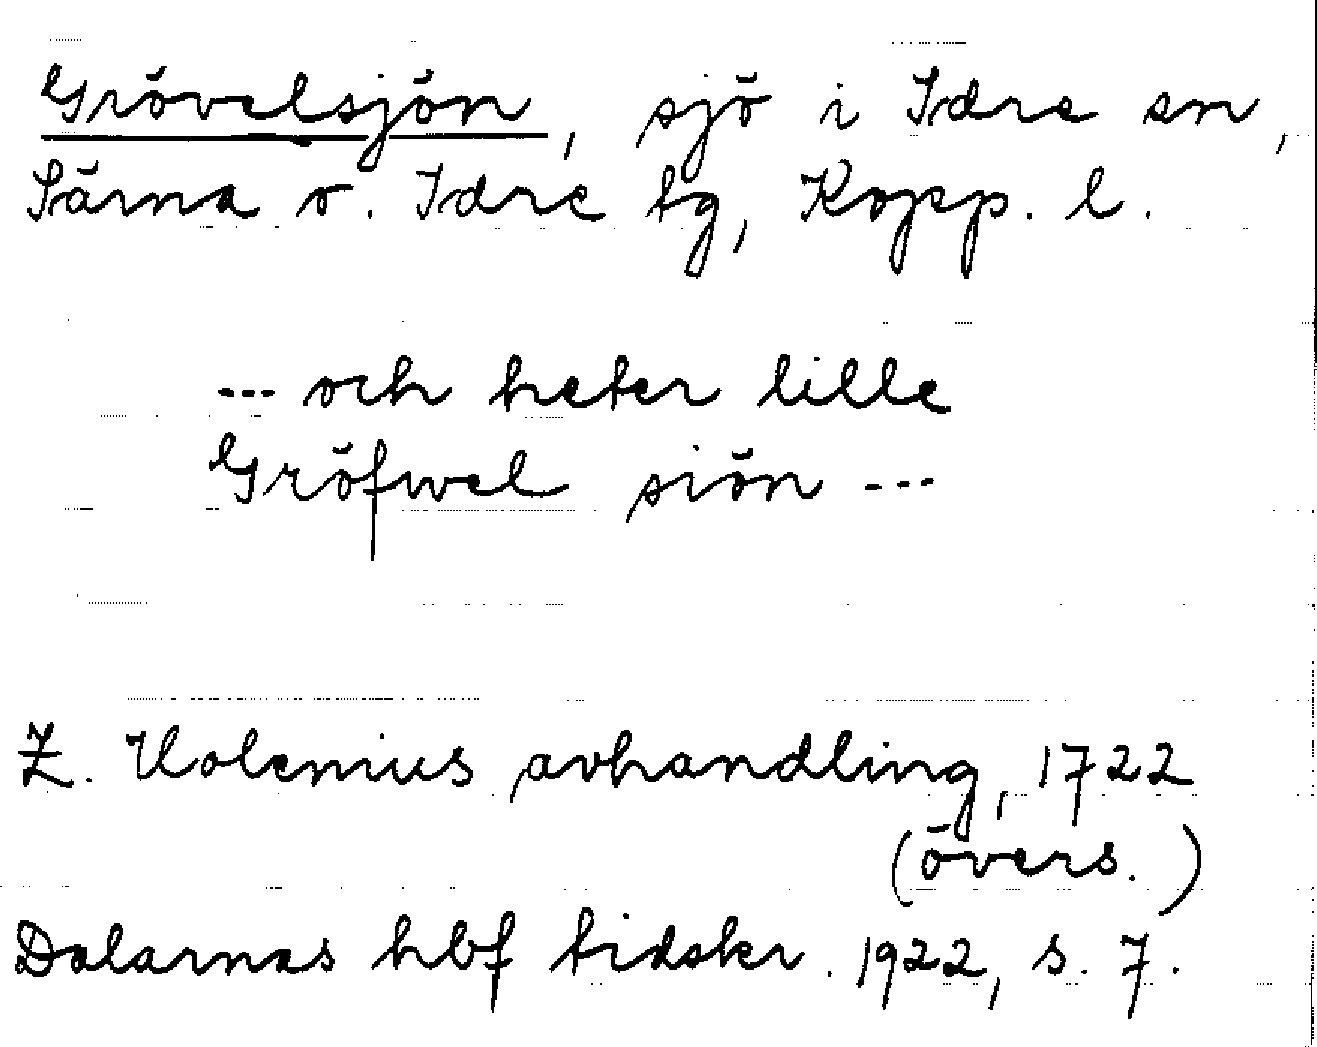 Grövelsjön, sjö i Idre sn,
Särna o. Idre tg, Kopp. l.
--- och heter lille
Gröfwel siön ---
Z. Holenius avhandling, 1722
(övers.)
Dalarnas hbf tidskr. 1922, s. 7.